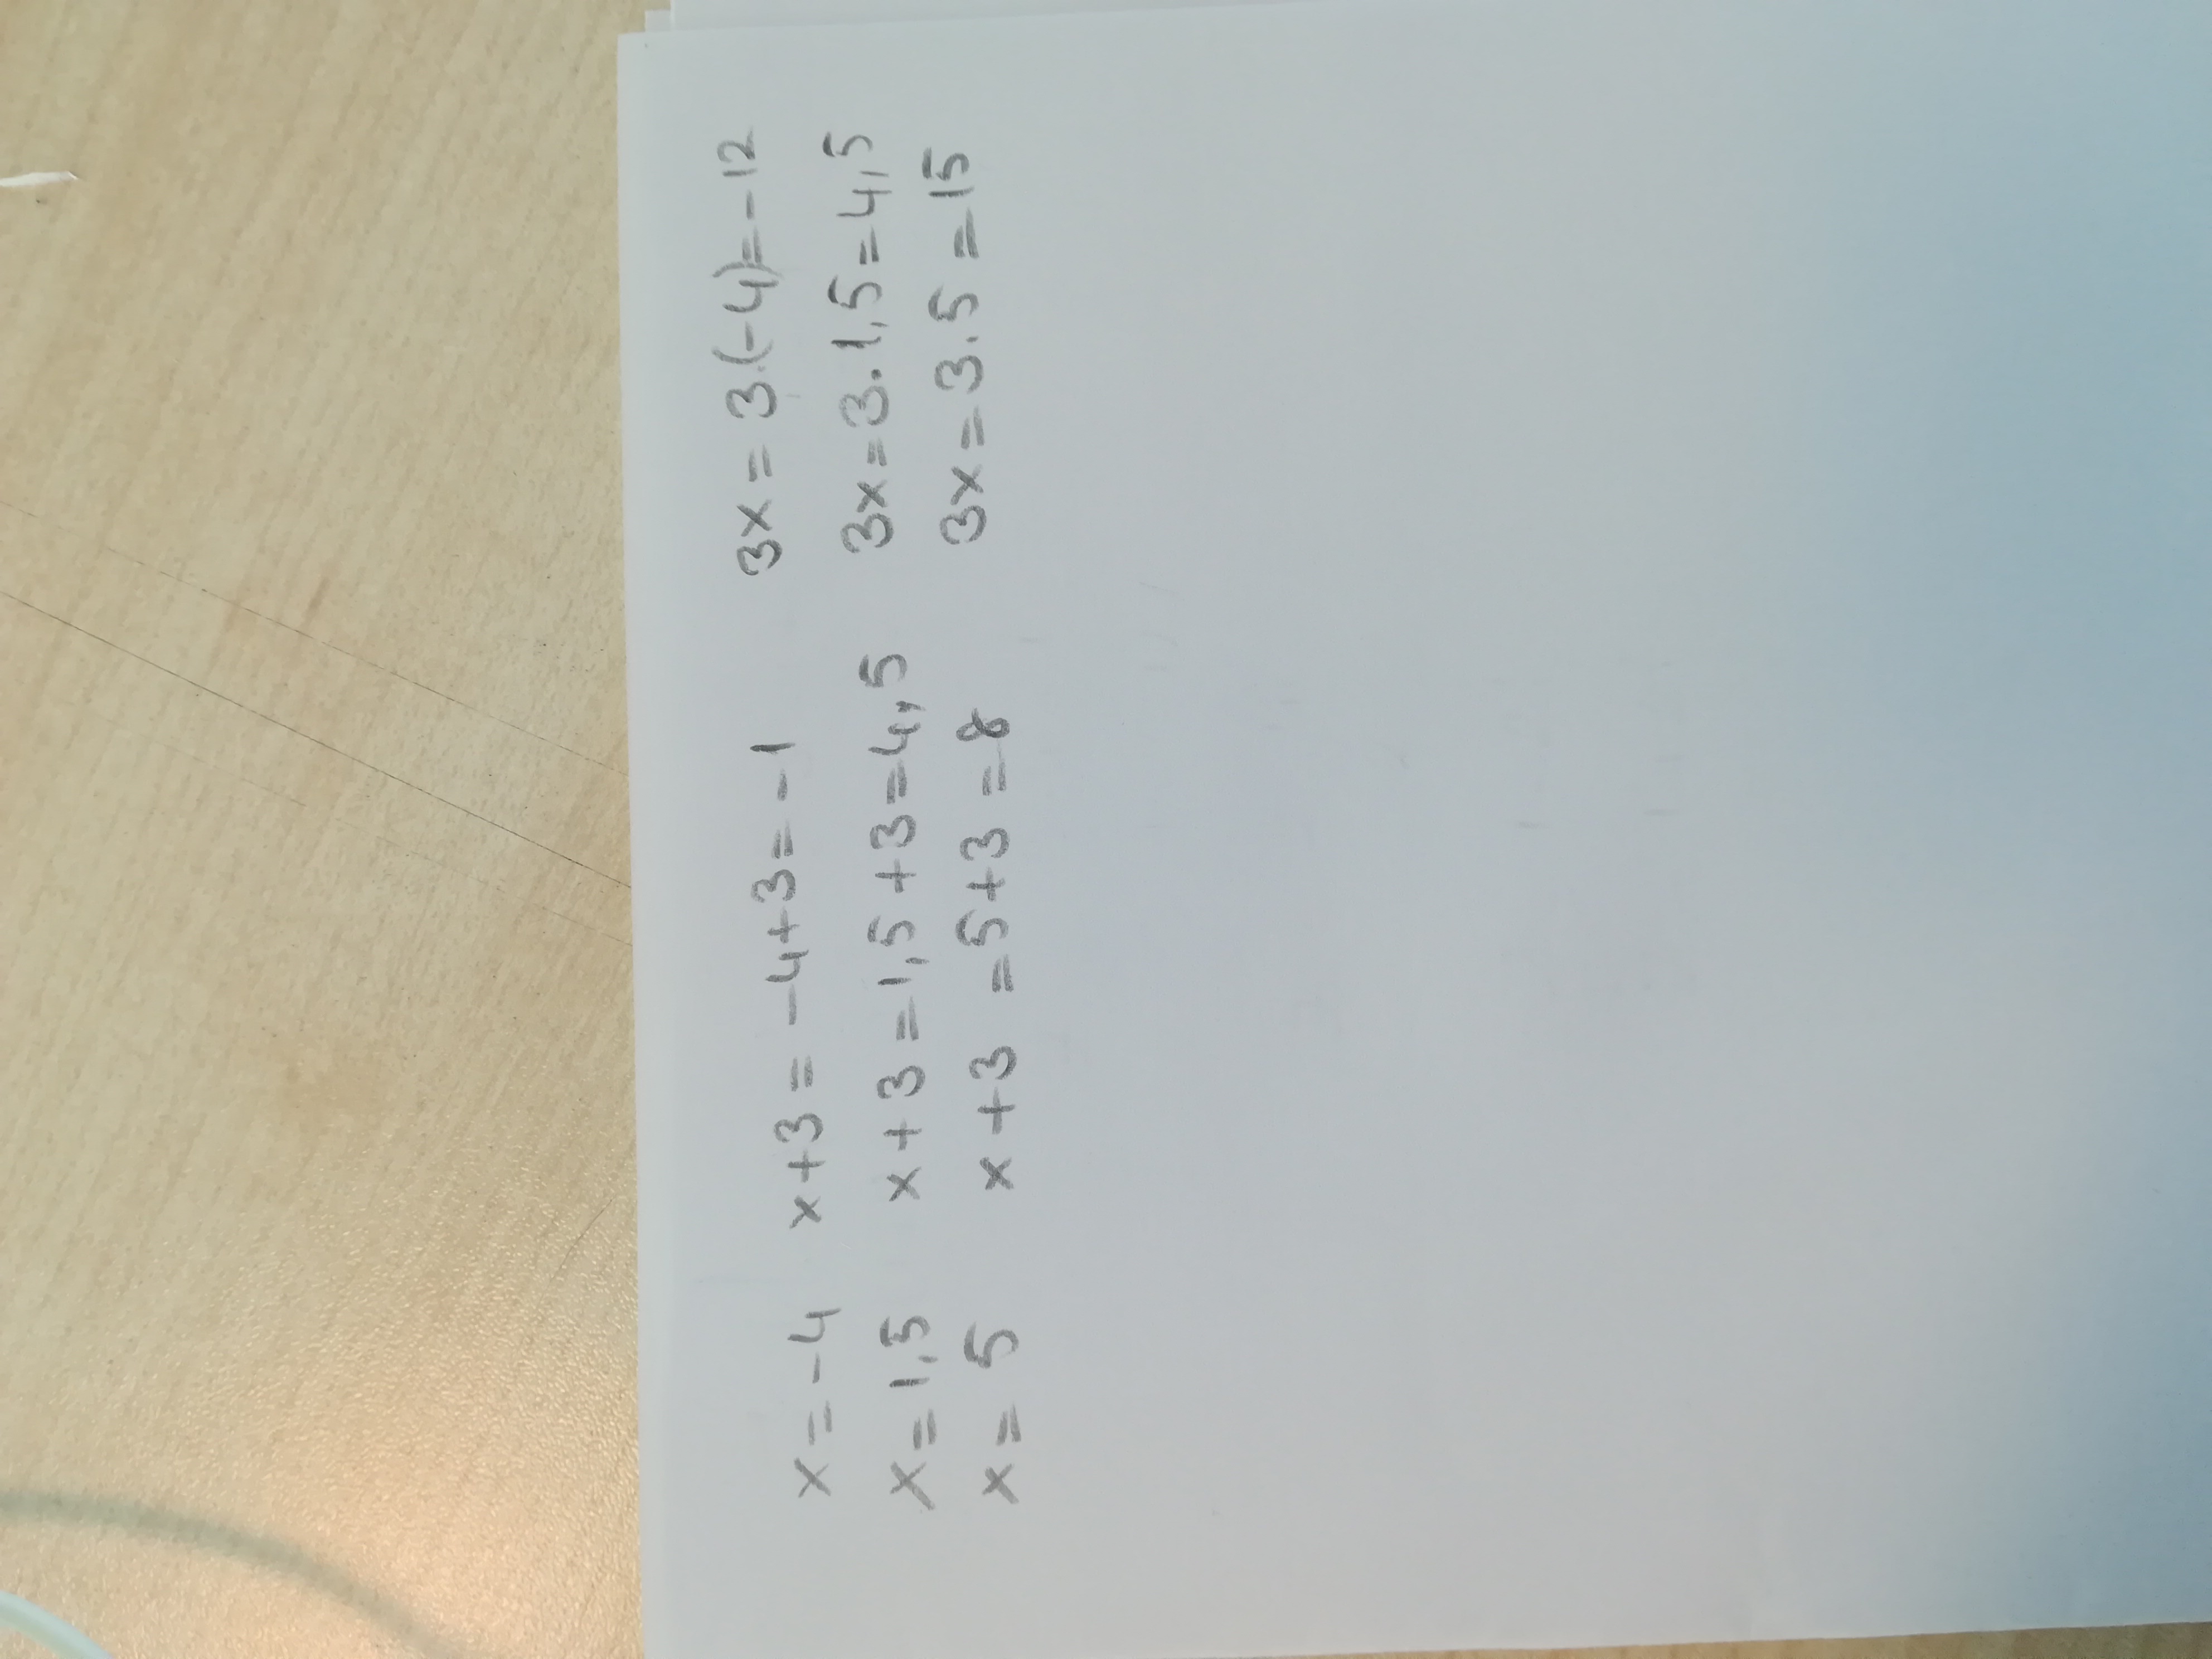 x = -4 x+3 = -4+3 = -1 3x = 3·(-4) = -12
x = 1,5 x+3 = 1,5+3 = 4,5 3x = 3·1,5 = 4,5
x = 5 x+3 = 5+3 = 8 3x = 3·5 = 15